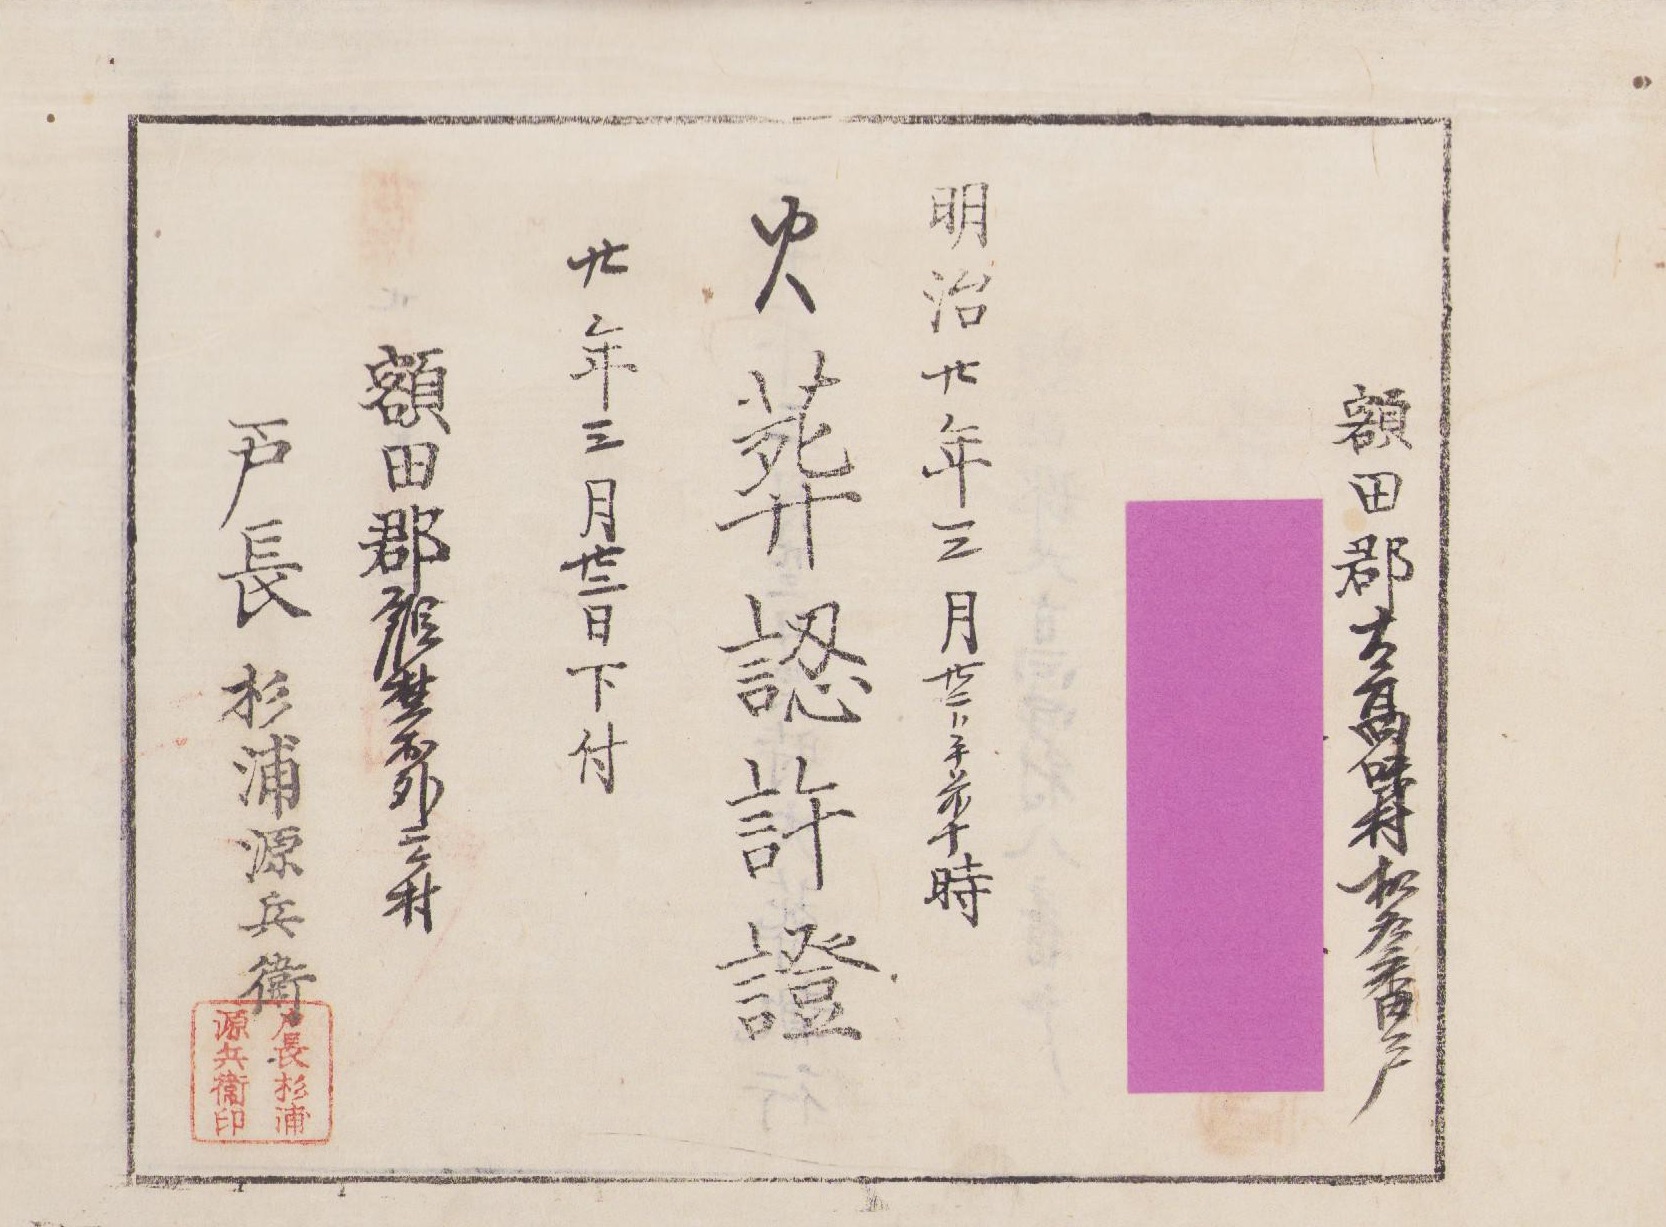 額田郡大高味村松参番戸
明治廿年三月廿三日午前十時
火葬認許證
廿年三月廿三日下付
額田郡 村
戸長 杉浦源兵衛
戸長杉浦
源兵衞印